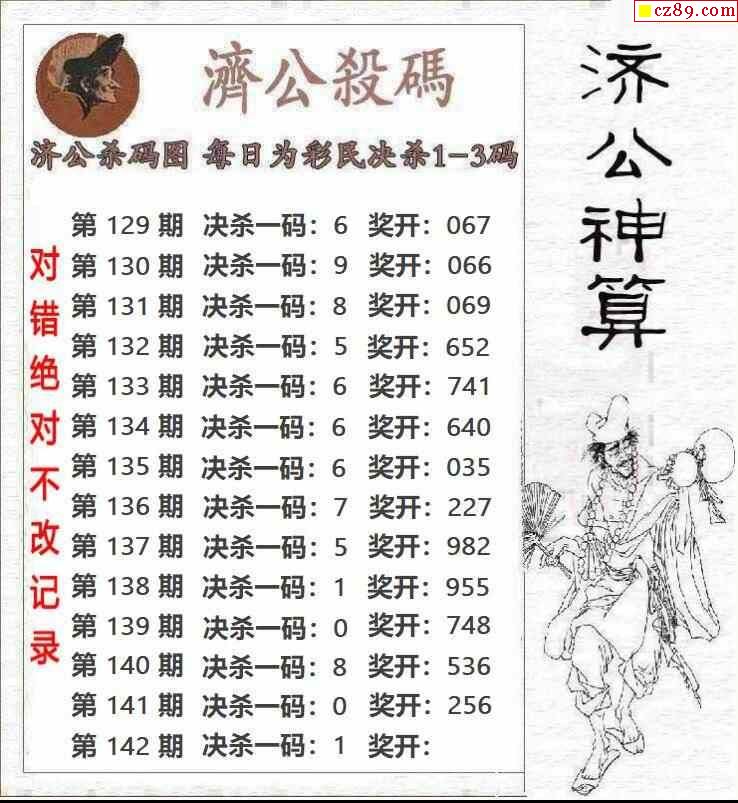 cz89.com
濟公殺碼
济公杀码图 每日为彩民决杀1-3码
第 129 期 决杀一码：6 奖开：067
第 130 期 决杀一码：9 奖开：066
第 131 期 决杀一码：8 奖开：069
第 132 期 决杀一码：5 奖开：652
第 133 期 决杀一码：6 奖开：741
第 134 期 决杀一码：6 奖开：640
第 135 期 决杀一码：6 奖开：035
第 136 期 决杀一码：7 奖开：227
第 137 期 决杀一码：5 奖开：982
第 138 期 决杀一码：1 奖开：955
第 139 期 决杀一码：0 奖开：748
第 140 期 决杀一码：8 奖开：536
第 141 期 决杀一码：0 奖开：256
第 142 期 决杀一码：1 奖开：
对错绝对不改记录
济公神算